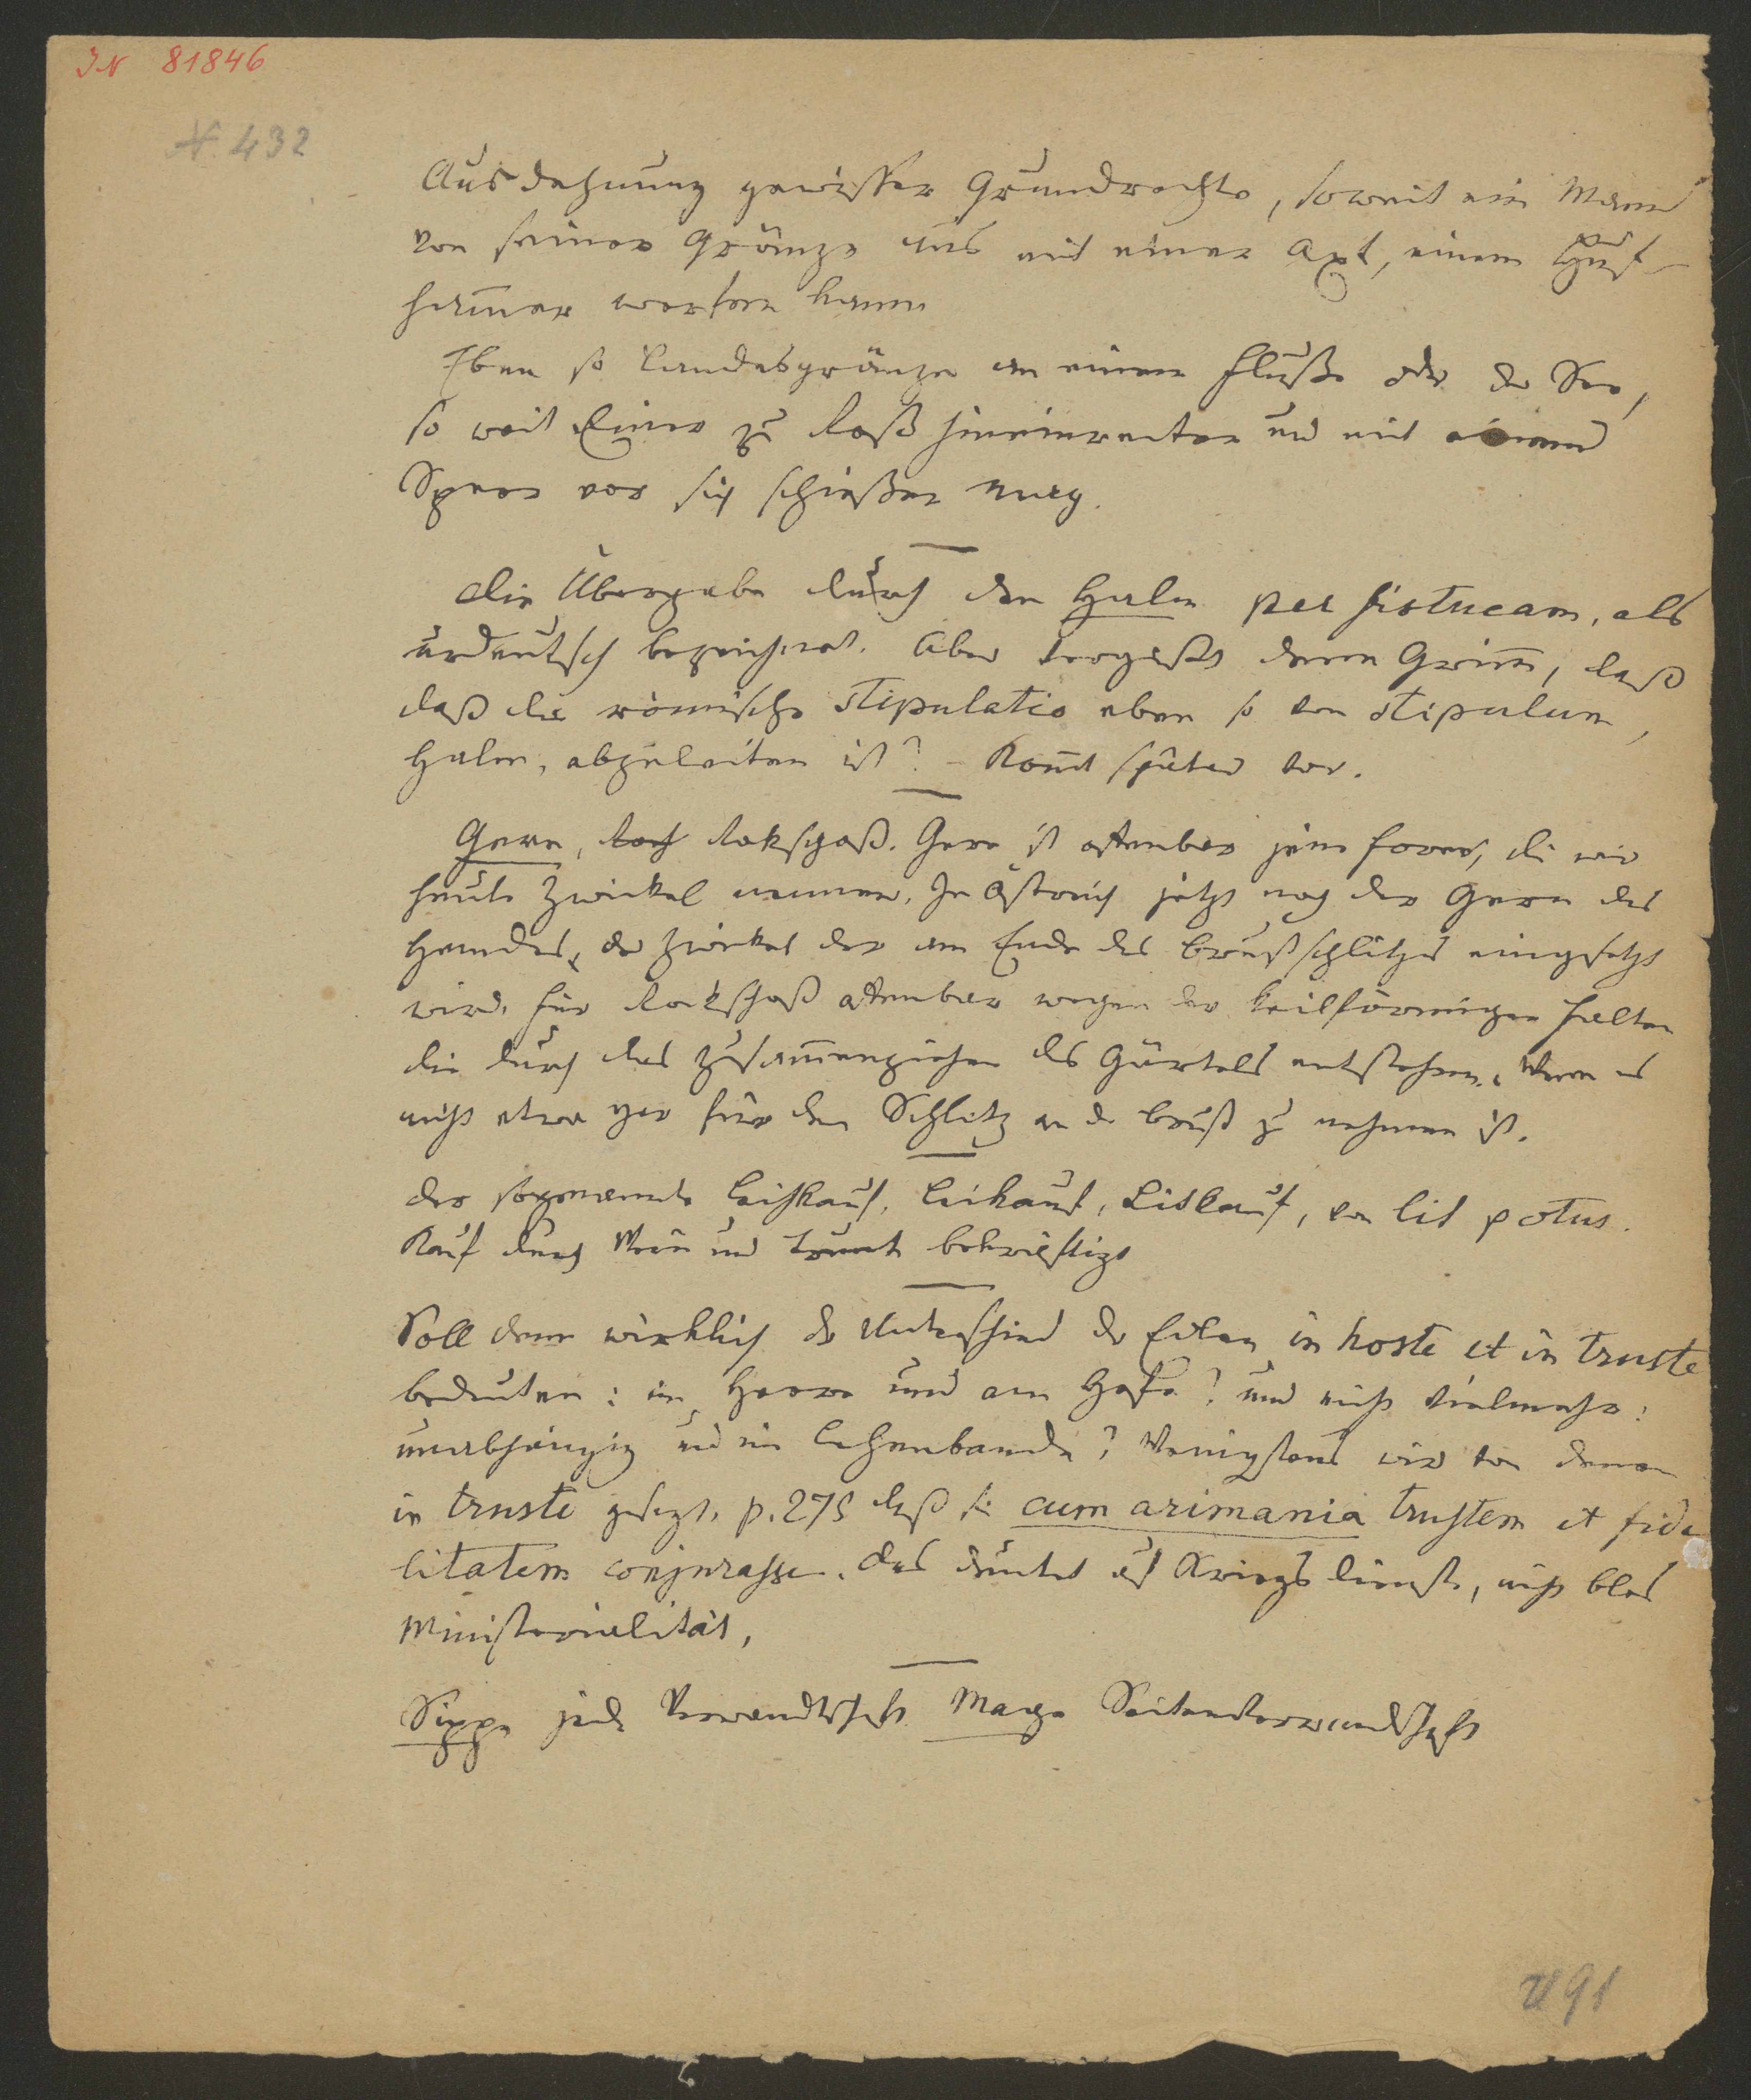 IN 81846
N. 432
Ausdehnung gewisser Grundrechte, soweit ein Mann
von seiner Gränze aus mit einer Axt, einem Huf-
ham̅er werfen kann
Eben so Landesgränze an einem Fluße oder der See,
so weit Einer zu Roß hineinreiten und mit einem
Speer vor sich schießen mag.
Die Übergabe durch den Halm per fistucam, als
urdeutsch bezeichnet. Aber vergißt denn Grim̅, daß
daß die römische stipulatio eben so von stipulum,
Halm, abzuleiten ist? – Kom̅t später vor.
Gere, Rockschoß. Gere ist offenbar jene Form, die wir
heute Zwickel nennen. In Östreich jetzt noch der Geren des
Hemdes, der Zwickel der am Ende des Brustschlitzes eingesetzt
wird. Für Rockschoß offenbar wegen der keilförmigen Falten
die durch das Zusam̅enziehen des Gürtels entstehen. Wenn es
nicht etwa gar für den Schlitz an der Brust zu nehmen ist.
Der sogenannte Leihkauf, Leikauf, Litkauf, von lit potus.
Kauf durch Wein und Trunk bekräftigt
Soll denn wirklich der Unterschied der Edlen in hoste et in truste
bedeuten: im Heere und am Hofe? und nicht vielmehr:
unabhängig und im Lehenbande? Wenigstens wird von denen
in truste gesagt, p. 275 daß sie cum arimania trustem et fide
litatem conjurasse. Das deutet auf Kriegsdienste, nicht blos
Ministerialität,
Sippe jede Verwandtschaft. Mage Seitenverwandtschaft
491